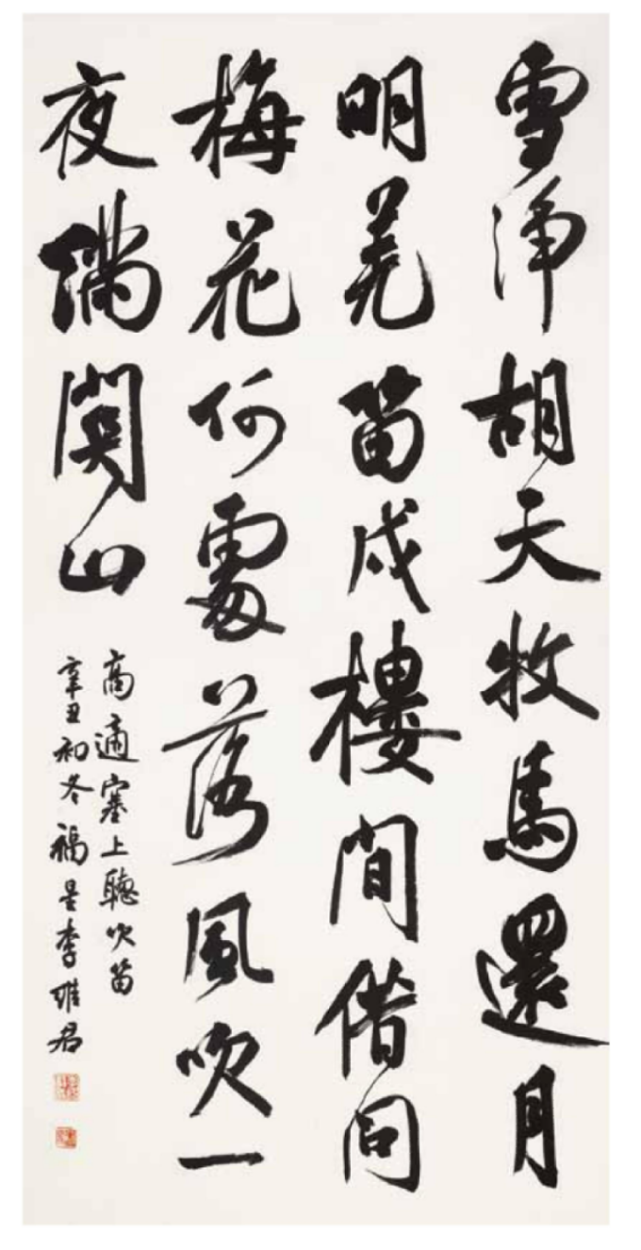 雪淨胡天牧馬還月
明羌笛戍樓間借问
梅花何處落風吹一
夜滿関山
高適塞上聽吹笛
辛丑初冬福星李雅君